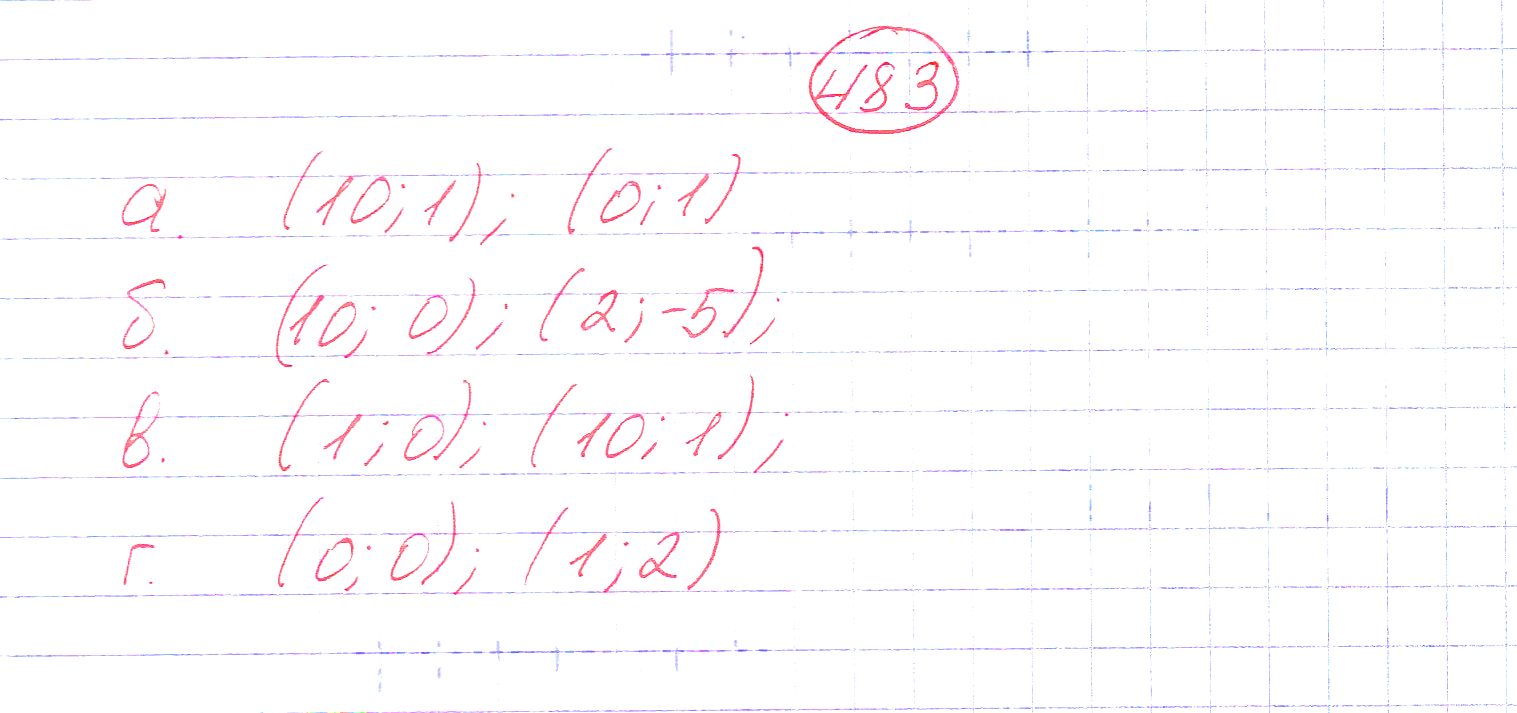 483
а. (10; 1); (0; 1)
б. (10; 0); (2; -5);
в. (1; 0); (10; 1);
г. (0; 0); (1; 2)